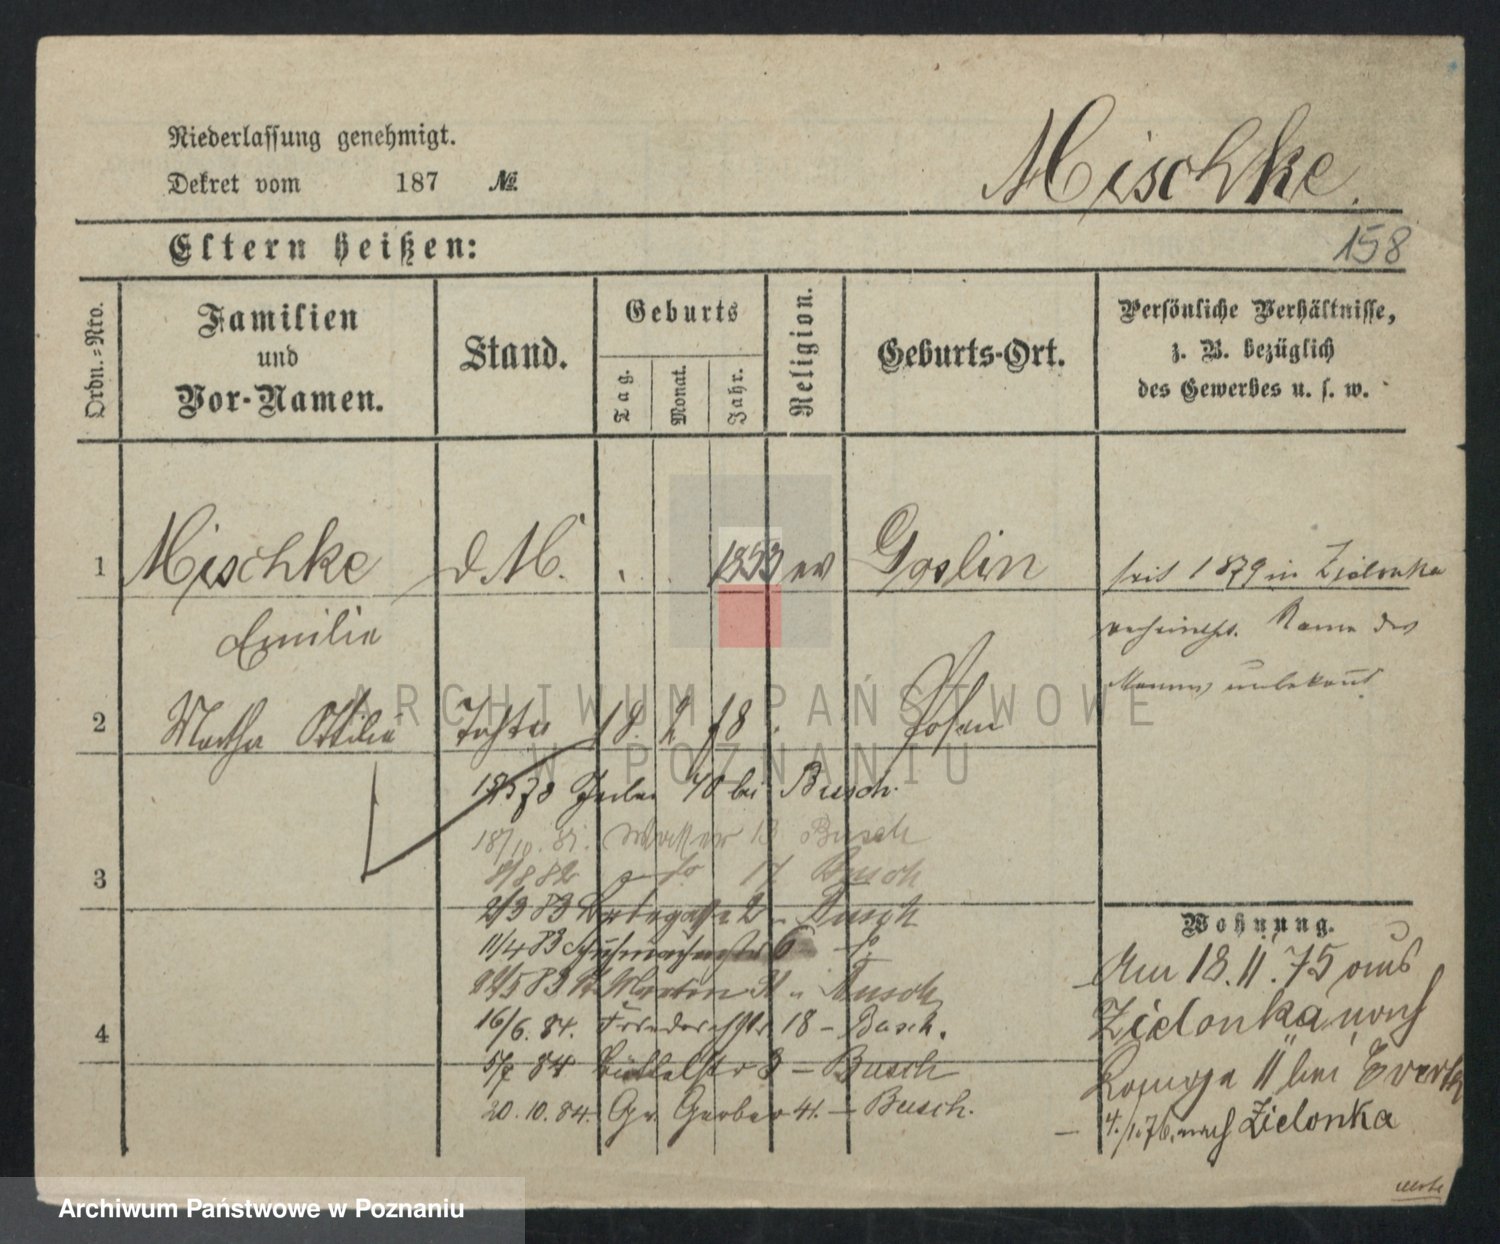 Niederlassung genehmigt.
Dekret vom 187 №
Mischke.
Eltern heißen:
158
Ordn.-Nro.
Familien
und
Vor-Namen.
Stand.
Geburts
Tag.
Monat.
Jahr.
Religion.
Geburts-Ort.
Persönliche Verhältnisse,
z. B. bezüglich
des Gewerbes u. s. w.
1 Mischke d. M. 1853 ev Goslin
Emilie
seit 1879 in Zielonka
verheirath. Name des
Mannes unbekannt
2 Martha Ottilie Tochter 18. 2 78 Posen
78 40 bei Busch.
18/10. 81. 13 Busch
8/8 82 do 17 Busch
3
2/3 83 2 - Busch
11/4 83 Schuhmacherstr 6
5 83 St Martin Busch
4
16/6. 84. Friedrichstr 18 - Busch.
5/7 84 Büttelstr 8 - Busch
20. 10. 84. Gr. Gerber 41. - Busch.
Wohnung.
Am 18. 11. 75 aus
Zielonka nach
11 bei
4./1. 76. nach Zielonka
ARCHIWUM PAŃSTWOWE
W POZNANIU
Archiwum Państwowe w Poznaniu